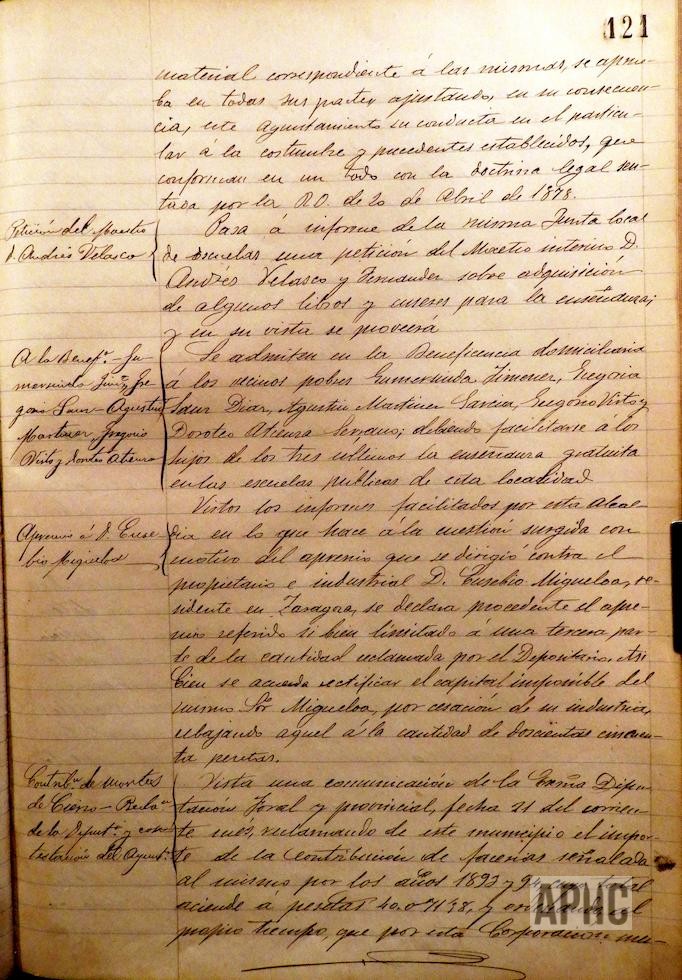 121
material correspondiente á las mismas, se aprue-
ba en todas sus partes ajustando, en su consecuen-
cia, este Ayuntamiento su conducta en el particu-
lar á la costumbre y precedentes establecidos, que
conforman en un todo con la doctrina legal sen-
tada por la R.O. de 20 de Abril de 1878.
Petición del Maestro
D. Andrés Velasco
Pasa á informe de la misma Junta local
de escuelas una petición del Maestro interino D.
Andrés Velasco y Fernander sobre adquisición
de algunos libros y enseres para la enseñanza;
y en su vista se proveerá
A la Benefª.- Gu-
mersinda Jimz, Gre-
goria Sanz - Agustin
Martinez, Gregorio
Virto y Doroteo Atienza
Se admiten en la Beneficencia domiciliaria
á los vecinos pobres Gumersinda Jimenez, Gregoria
Sanz Diaz, Agustin Martinez Garcia, Gregorio Virto y
Doroteo Atienza Serrano; debiendo facilitarse a los
hijos de los tres ultimos la enseñanza gratuita
en las escuelas públicas de esta localidad
Apremio á D. Euse-
bio Migueloa
Vistos los informes facilitados por esta Alcal-
dia en lo que hace á la cuestión surgida con
motivo del apremio que se dirigió contra el
propietario e industrial D. Eusebio Migueloa, re-
sidente en Zaragoza, se declara procedente el apre-
mio referido si bien limitado á una tercera par-
te de la cantidad reclamada por el Depositario. Asi
bien se acuerda rectificar el capital imponible del
mismo Sor Migueloa, por cesación de su industria,
rebajando aquel a la cantidad de doscientas cincuen-
ta pesetas.
Contribn de montes
de Cierzo - Reclan
de la Diputn y con-
testación del Ayuntº
Vista una comunicación de la Excma Dipu-
tacion Foral y provincial, fecha 21 del corrien-
te mes, reclamando de este municipio el impor-
te de la contribución de facerias señalada
al mismo por los años 1893 y 94, cuyo total
asciende a pesetas y al
propio tiempo, que por esta Corporación
APMC